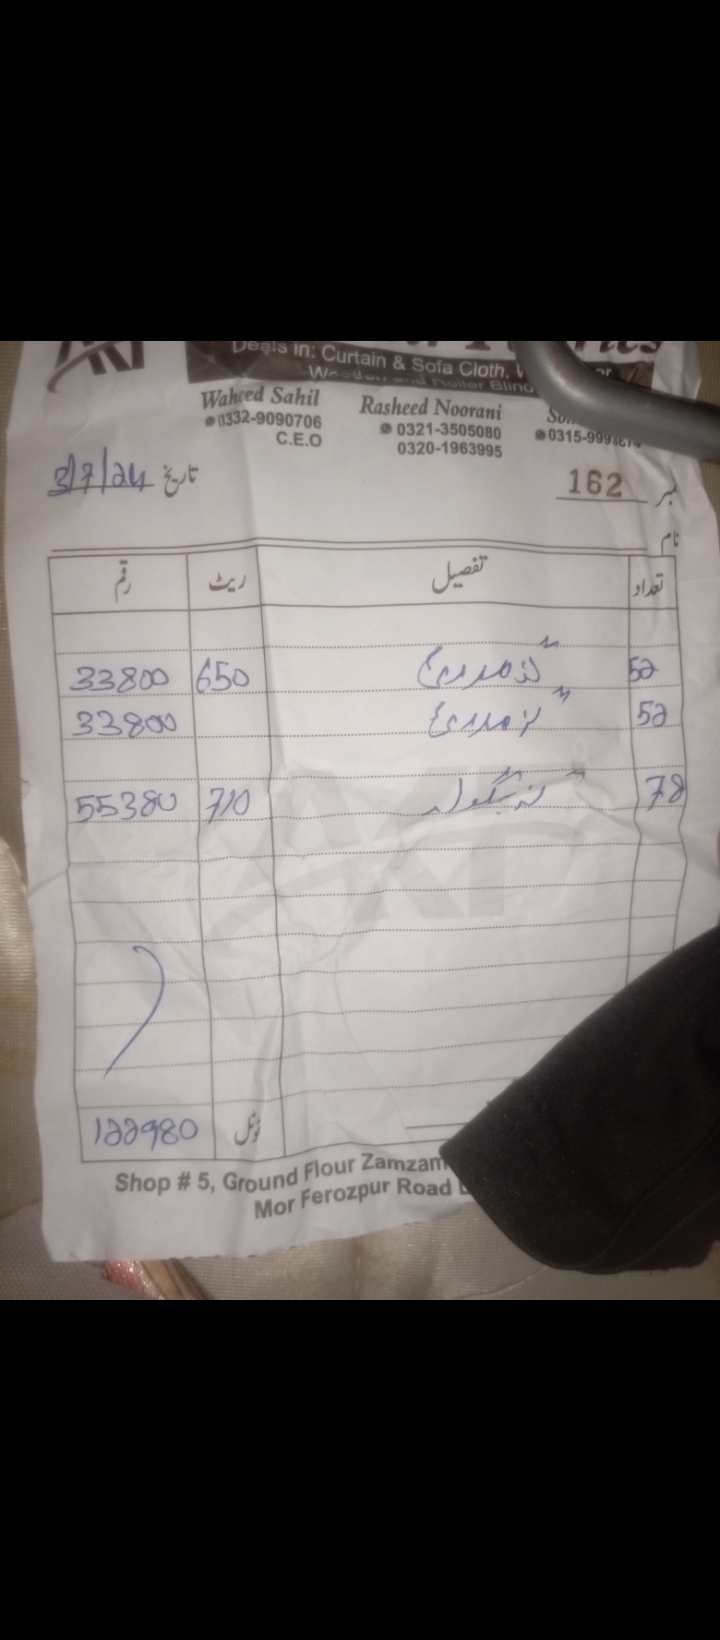 AKF
Deals in: Curtain & Sofa Cloth,
Wooden and Roller Blind
Waheed Sahil
0332-9090706
C.E.O
Rasheed Noorani
0321-3505080
0320-1963995
0315-999
تاریخ 3/7/24
نمبر 162
نام
تعداد تفصیل ریٹ رقم
52 گز 650 33800
52 گز 33800
78 گز 710 55380
ٹوٹل 122980
Shop # 5, Ground Flour Zamzam
Mor Ferozpur Road